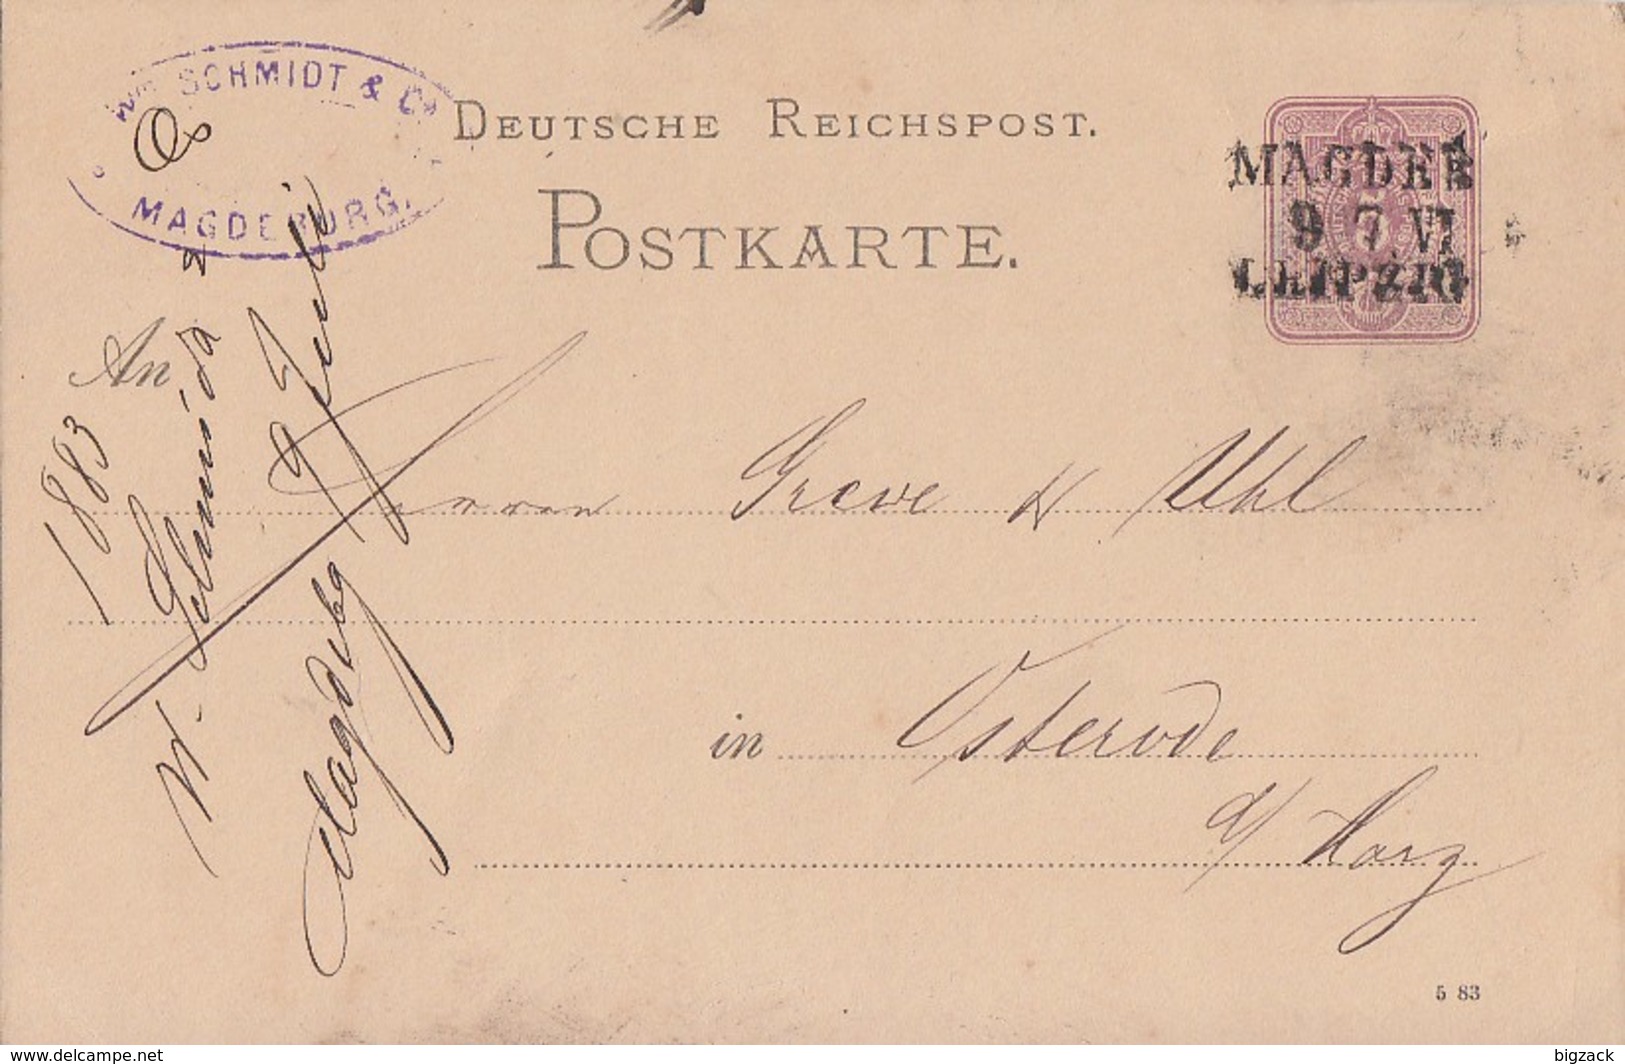 Wm SCHMIDT & Co
MAGDEBURG.
DEUTSCHE REICHSPOST.
POSTKARTE.
MAGDEB
9 7 VI
LEIPZIG
An
Herren Greve & Uhl
in Osterode
a/ Harz
1883
W. Schmidt &
Magdebg
9 Juli
5 83
www.delcampe.net
bigzack